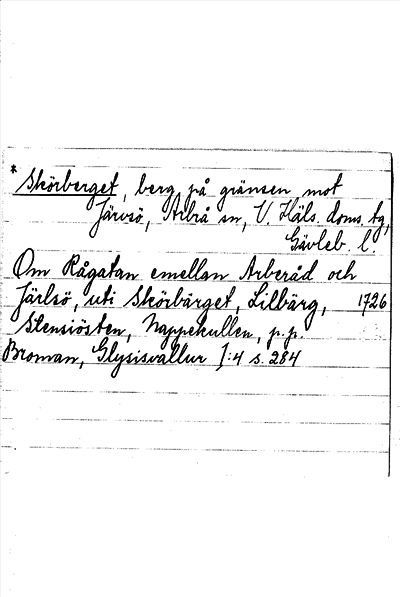 * Skörberget, berg på gränsen mot
Järvsö, Arbrå sn, V. Häls. doms. tg,
Gävleb. l.
Om Rågatan emellan Arberåd och
Järlsö, uti Skörbärget, Lilbärg, 1726
Stensiösten, Nappekullen, p.p.
Broman, Glysisvallur I:4 s. 284